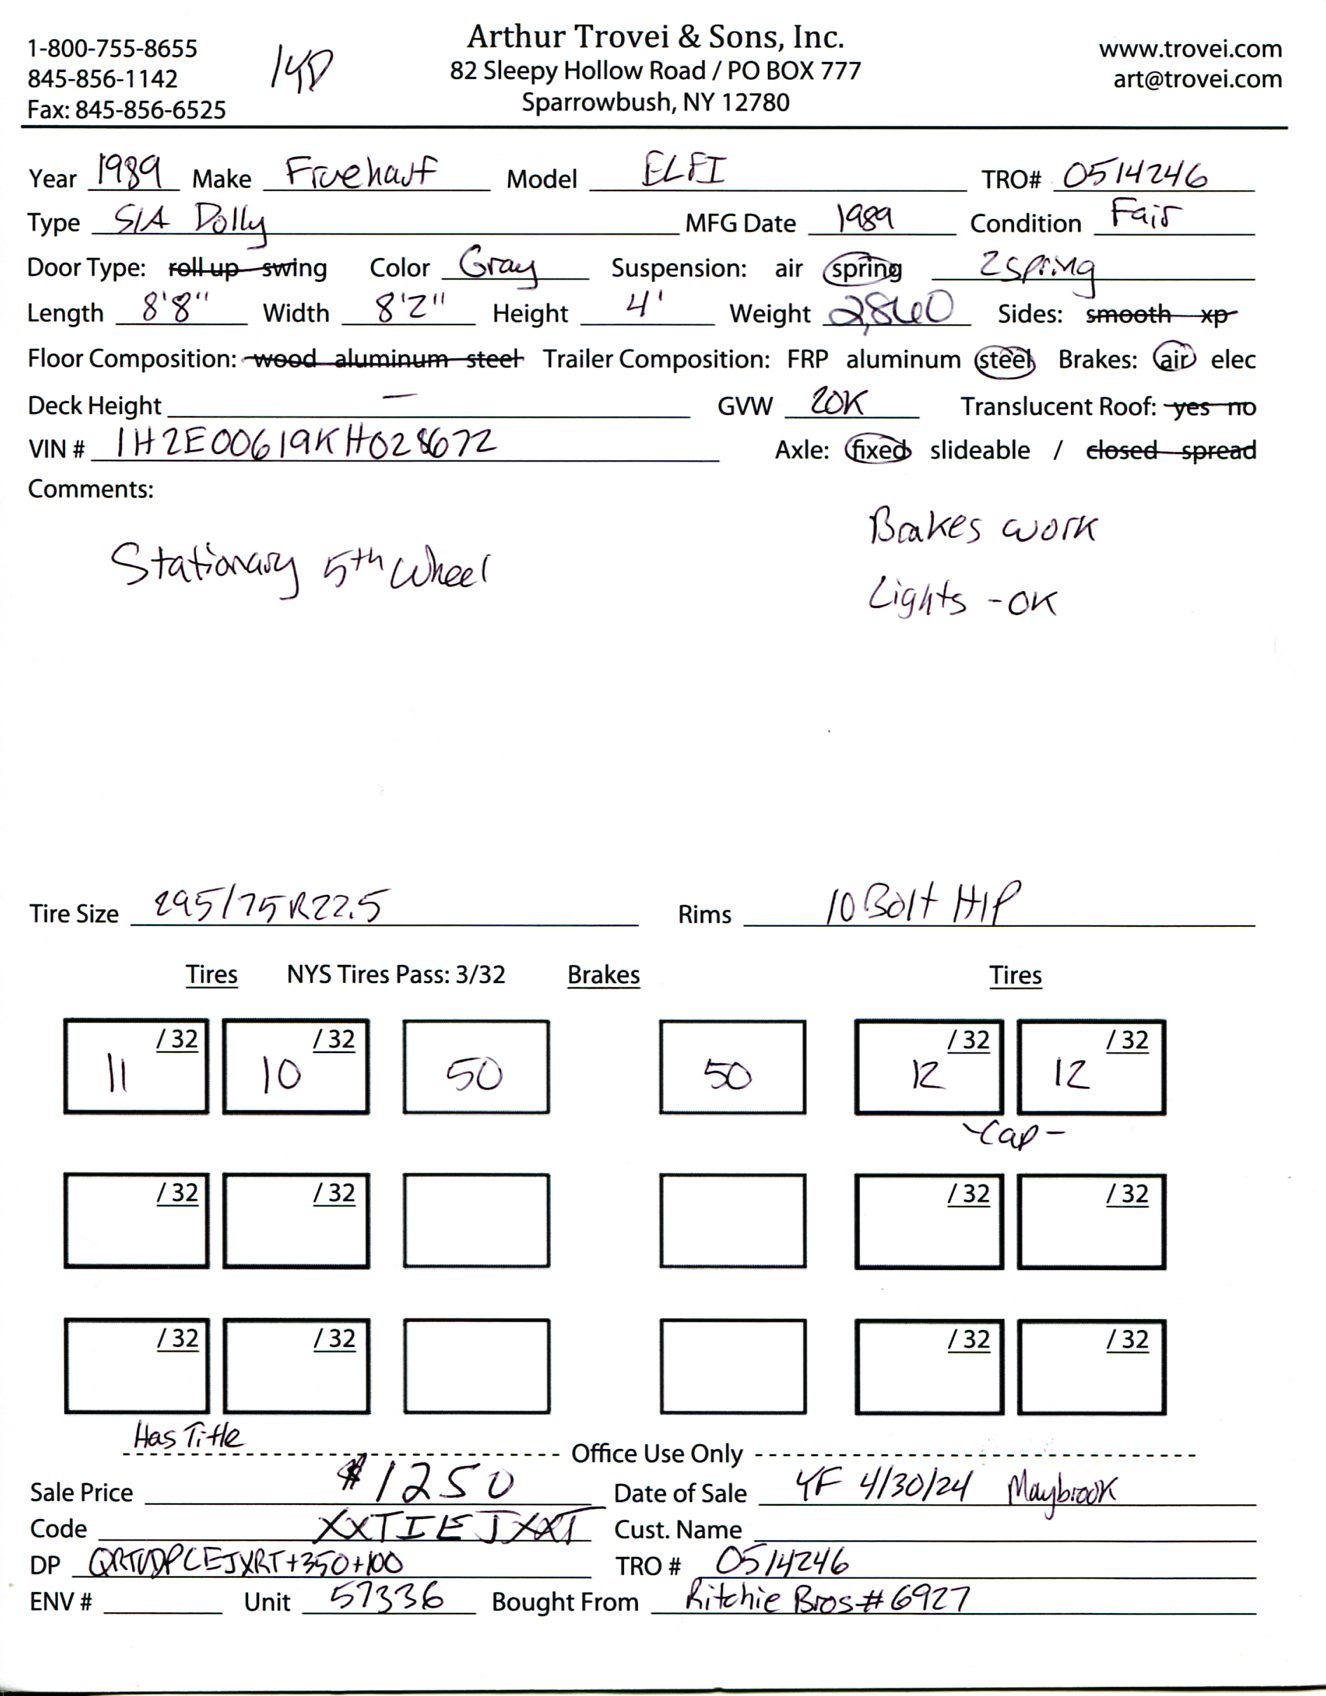 Arthur Trovei & Sons, Inc.
82 Sleepy Hollow Road / PO BOX 777
Sparrowbush, NY 12780
1-800-755-8655
845-856-1142
Fax: 845-856-6525
14D
www.trovei.com
art@trovei.com
Year 1989 Make Fruehauf Model ELFI TRO# 0514246
Type S/A Dolly MFG Date 1989 Condition Fair
Door Type: roll up swing Color Gray Suspension: air spring 2 spring
Length 8'8" Width 8'2" Height 4' Weight 2,860 Sides: smooth xp
Floor Composition: wood aluminum steel Trailer Composition: FRP aluminum steel Brakes: air elec
Deck Height — GVW 20K Translucent Roof: yes no
VIN # 1H2E00619KH028672 Axle: fixed slideable / closed spread
Comments:
Stationary 5th Wheel
Brakes work
Lights - OK
Tire Size 295/75R22.5 Rims 10 Bolt H/P
Tires NYS Tires Pass: 3/32 Brakes Tires
11 /32 10 /32 50 50 12 /32 12 /32
-Cap-
/32 /32 /32 /32
/32 /32 /32 /32
Has Title
Office Use Only
Sale Price $1250 Date of Sale YF 4/30/24 Maybrook
Code XXTIEJXXT Cust. Name
DP +350+100 TRO # 0514246
ENV # Unit 57336 Bought From Ritchie Bros #6927